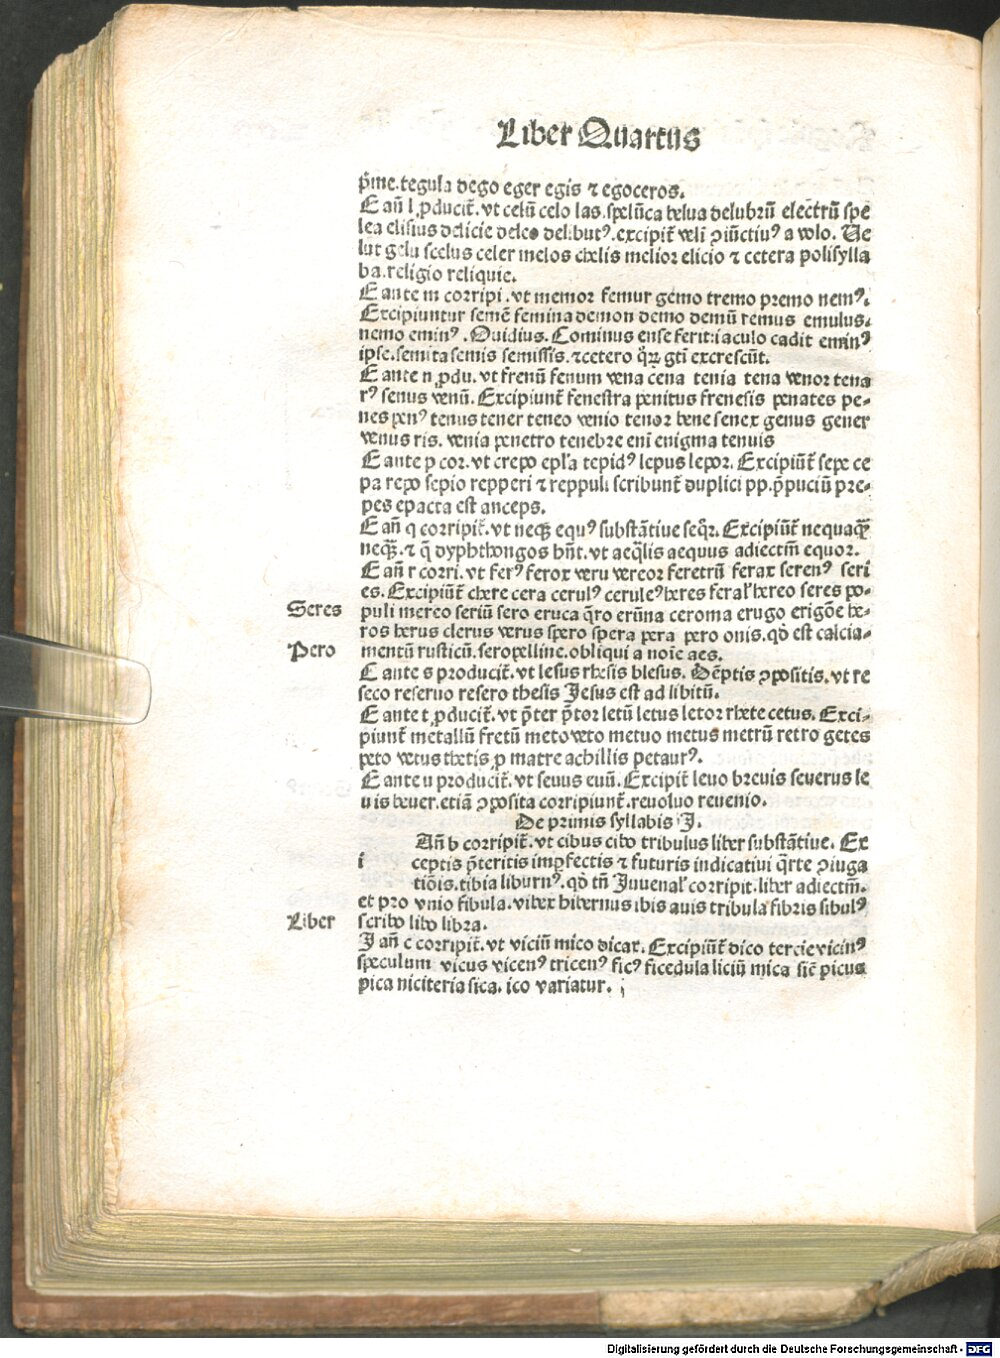 Liber Quartus
p̄me.tegula dego eger egis ⁊ egoceros.
E an̄ l ꝓducit̄. vt celū celo las.spelūca belua delubrū electrū spe
lea elisius delicie deleo delibutꝰ.excipit̄ veli ꝯiūctiuꝰ a volo. Ue
lut gelu scelus celer melos chelis melior elicio ⁊ cetera polisylla
ba.religio reliquie.
E ante m corripi. vt memor femur gemo tremo premo nemꝰ.
Excipiuntur semē femina demon demo demū remus emulus.
nemo eminꝰ. Ouidius. Cominus ense ferit:iaculo cadit eminꝰ
ipse.semita semis semissis.⁊cetero qꝝ gti excrescūt.
E ante n ꝓdu. vt frenū fenum vena cena tenia tena venor tena
rꝰ senus venū. Excipiunt̄ fenestra penitus frenesis penates pe-
nes penꝰ tenus tener teneo venio tenor bene senex genus gener
venus ris. venia penetro tenebre eni enigma tenuis
E ante p cor. vt crepo epl'a tepidꝰ lepus lepor. Excipiūt̄ sepe ce
pa repo sepio repperi ⁊ reppuli scribunt̄ duplici pp.p̄puciū pre-
pes epacta est anceps.
E an̄ q corripit̄. vt neqꝫ equꝰ substātiue seq̄r. Excipiūt̄ nequaq̄
neqꝫ.⁊ q̄ dyphthongos hn̄t. vt aeq̄lis aequus adiectīn equor.
E an̄ r corri. vt ferꝰ ferox veru vereor feretrū ferax serenꝰ seri
es. Excipiūt̄ chere cera cerulꝰ ceruleꝰ heres feral' hereo seres po-
Seres
puli mereo seriū sero eruca q̄ro erūna ceroma erugo erigōe he-
ros herus clerus verus spero spera pera pero onis.qd̄ est calcia-
Pero
mentū rusticū.seropelline.obliqui a noīe aes.
E ante s producit̄. vt lesus rhesis blesus. Dēptis ꝯpositis. vt re
seco reseruo resero thesis Jesus est ad libitū.
E ante t ꝓducit̄. vt p̄ter p̄tor letū letus letor rhete cetus. Exci-
piunt̄ metallū fretū meto veto metuo metus metrū retro getes
peto vetus thetis ꝓ matre achillis petaurꝰ.
E ante u producit̄. vt seuus euū. Excipit̄ leuo breuis seuerus le
uis heuer.etiā ꝯposita corripiunt̄.reuoluo reuenio.
De primis syllabis I.
i
An̄ b corripit̄. vt cibus cibo tribulus liber substātiue. Ex
ceptis p̄teritis imꝑfectis ⁊ futuris indicatiui q̄rte ꝯiuga
tiōis.tibia liburnꝰ. qd̄ tn̄ Juuenal' corripit.liber adiectīn.
et pro vnio fibula.vibex hibernus ibis auis tribula fibris sibulꝰ
Liber
scribo libo libra.
I an̄ c corripit̄. vt viciū mico dicax. Excipiūt̄ dico tercie vicinꝰ
speculum vicus vicenꝰ tricenꝰ ficꝰ ficedula liciū mica sic picus
pica niciteria sica. ico variatur.
Digitalisierung gefördert durch die Deutsche Forschungsgemeinschaft - DFG